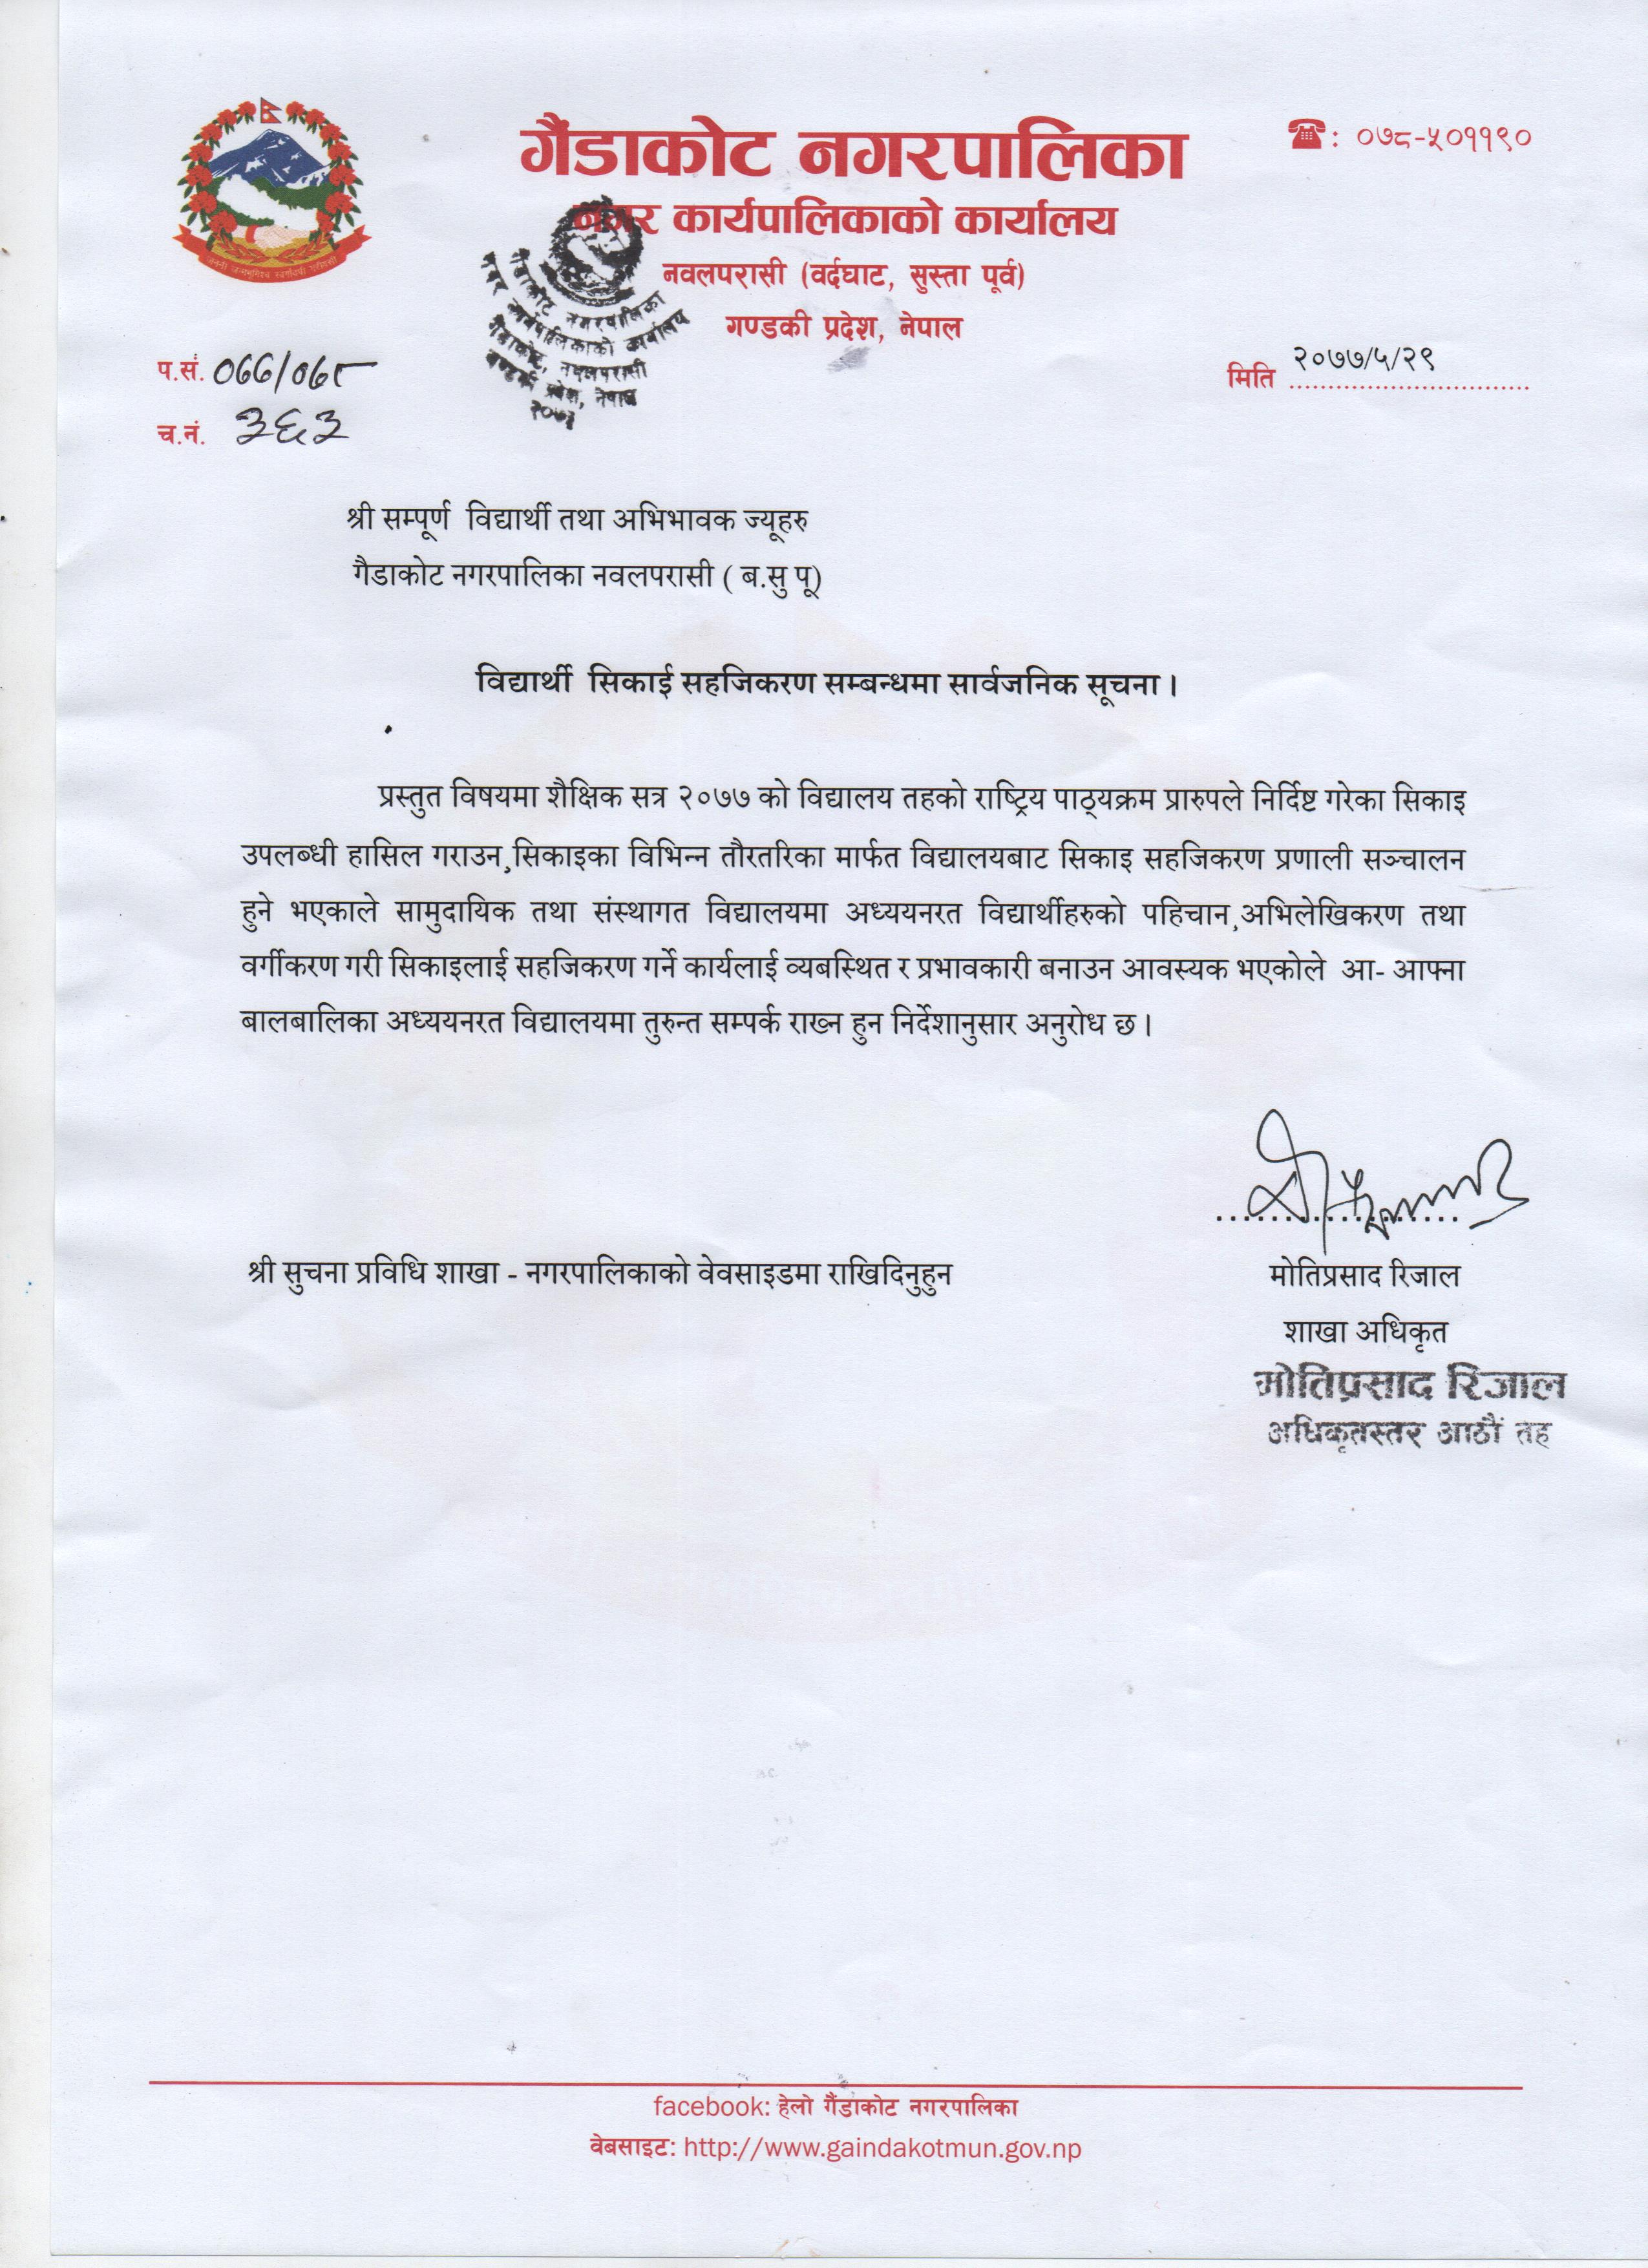 गैंडाकोट नगरपालिका
☎: ०७८-५०११९०
नगर कार्यपालिकाको कार्यालय
नवलपरासी (वर्दघाट, सुस्ता पूर्व)
गण्डकी प्रदेश, नेपाल
गैंडाकोट नगरपालिका
नगर कार्यपालिकाको कार्यालय
गैंडाकोट, नवलपरासी
गण्डकी प्रदेश, नेपाल
२०७३
प.सं. ०७७/०७८
मिति २०७७/५/२९
च.नं. ३६३
श्री सम्पूर्ण विद्यार्थी तथा अभिभावक ज्यूहरु
गैडाकोट नगरपालिका नवलपरासी ( ब.सु पू)
विद्यार्थी सिकाई सहजिकरण सम्बन्धमा सार्वजनिक सूचना ।
प्रस्तुत विषयमा शैक्षिक सत्र २०७७ को विद्यालय तहको राष्ट्रिय पाठ्यक्रम प्रारुपले निर्दिष्ट गरेका सिकाइ
उपलब्धी हासिल गराउन,सिकाइका विभिन्न तौरतरिका मार्फत विद्यालयबाट सिकाइ सहजिकरण प्रणाली सञ्चालन
हुने भएकाले सामुदायिक तथा संस्थागत विद्यालयमा अध्ययनरत विद्यार्थीहरुको पहिचान,अभिलेखिकरण तथा
वर्गीकरण गरी सिकाइलाई सहजिकरण गर्ने कार्यलाई व्यबस्थित र प्रभावकारी बनाउन आवस्यक भएकोले आ- आफ्ना
बालबालिका अध्ययनरत विद्यालयमा तुरुन्त सम्पर्क राख्न हुन निर्देशानुसार अनुरोध छ ।
श्री सुचना प्रविधि शाखा - नगरपालिकाको वेवसाइडमा राखिदिनुहुन
मोतिप्रसाद रिजाल
शाखा अधिकृत
मोतिप्रसाद रिजाल
अधिकृतस्तर आठौं तह
facebook: हेलो गैंडाकोट नगरपालिका
वेबसाइट: http://www.gaindakotmun.gov.np